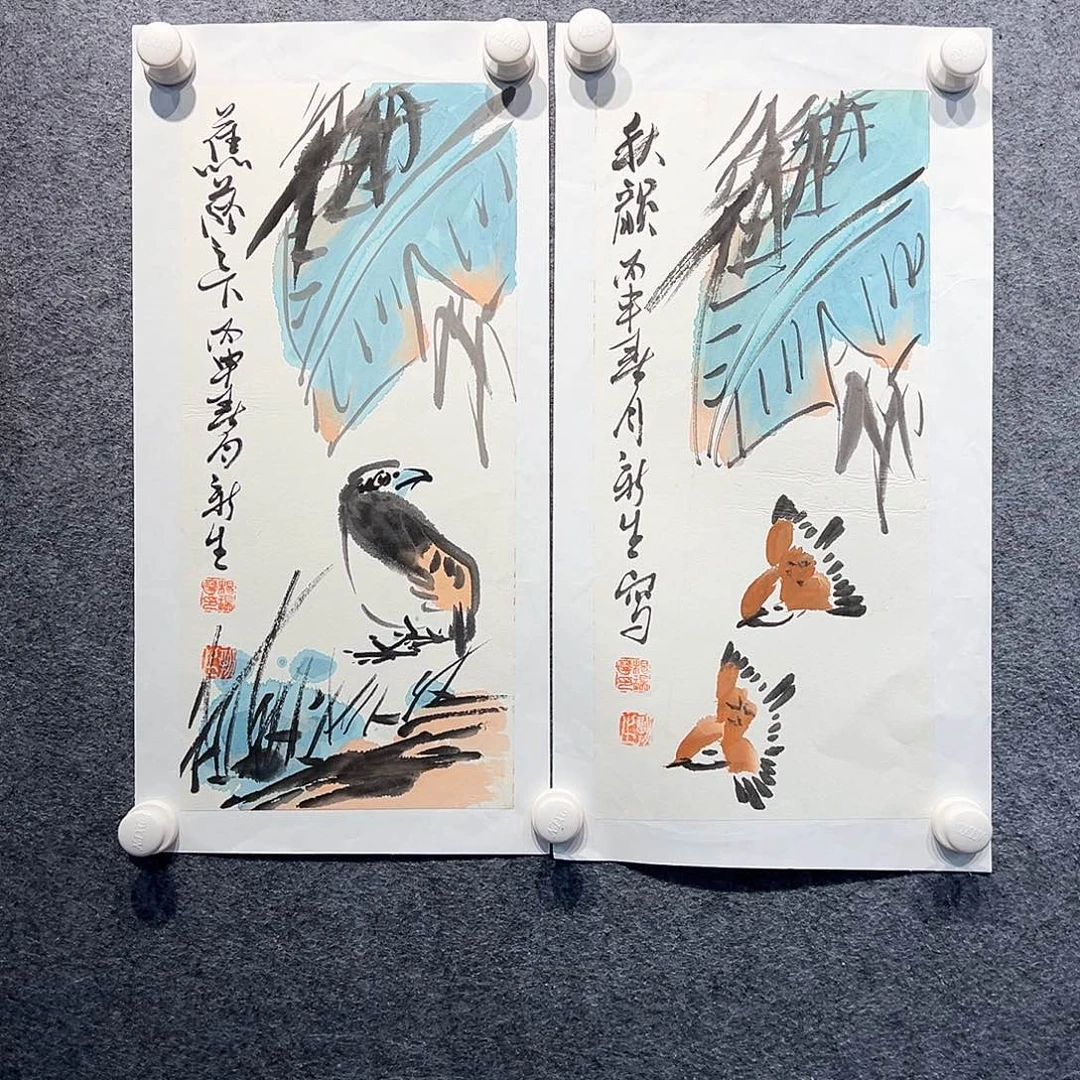 蕉荫之下 丙申春月 新生
秋韻 丙申春月 新生寫